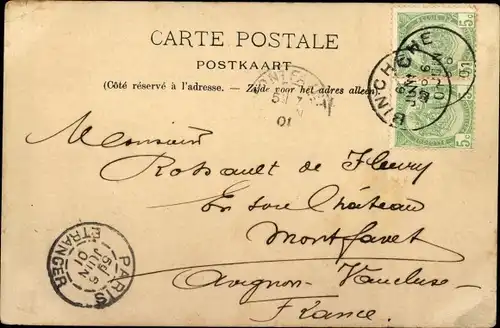 CARTE POSTALE
POSTKAART
(Côté réservé à l'adresse. — Zijde voor het adres alleen)
5c
5c
BINCHE
01
Monsieur
Rohault de Fleury
En son Château
Montfavet
Avignon - Vaucluse -
France.
PARIS
5E 6
JUIN
01
ETRANGER